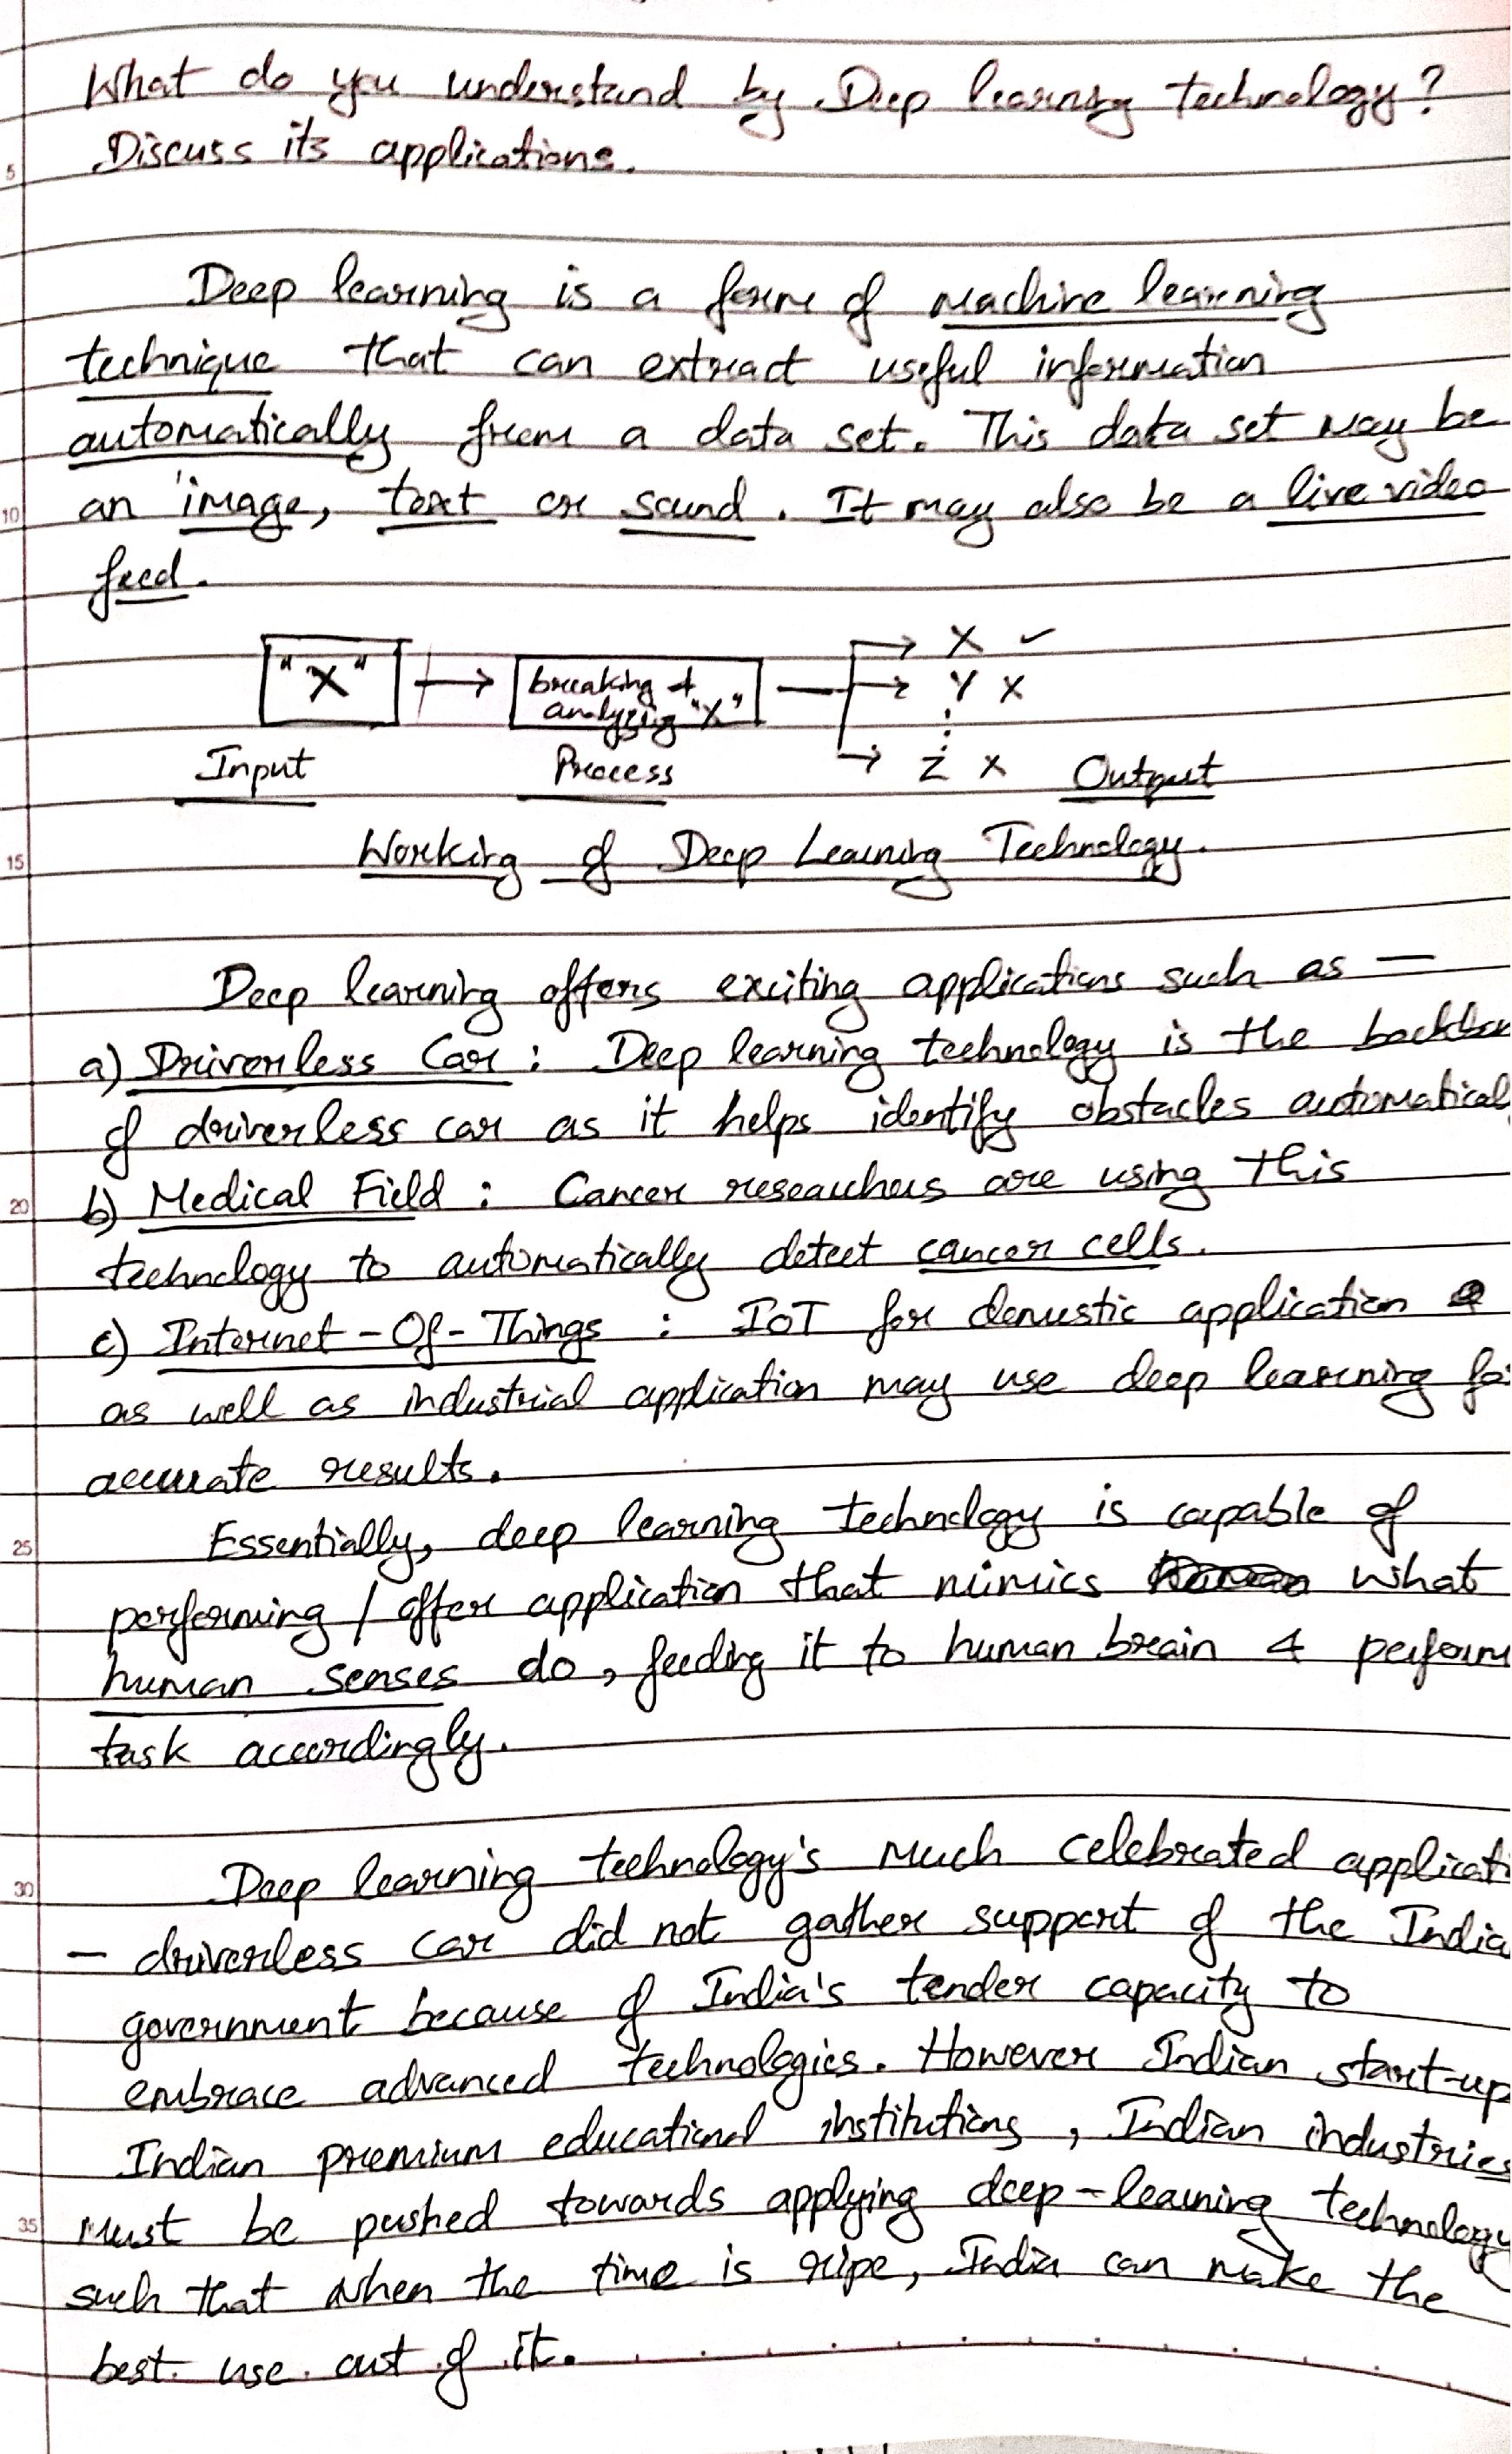 What do you understand by Deep learning technology?
Discuss its applications.
Deep learning is a form of machine learning
technique that can extract useful information
automatically from a data set. This data set may be
an image, text or sound. It may also be a live video
feed.
"X" → breaking & analyzing "X" → X ✓
→ Y X
→ Z X
Input Process Output
Working of Deep Learning Technology.
Deep learning offers exciting applications such as —
a) Driverless Car : Deep learning technology is the backbon
of driverless car as it helps identify obstacles automatical
b) Medical Field : Cancer researchers are using this
technology to automatically detect cancer cells.
c) Internet-Of-Things : IoT for domestic application
as well as industrial application may use deep learning for
accurate results.
Essentially, deep learning technology is capable of
performing / offer application that mimics what
human senses do, feeding it to human brain & perform
task accordingly.
Deep learning technology's much celebrated applicati
— driverless car did not gather support of the India
government because of India's tender capacity to
embrace advanced technologies. However Indian start-up
Indian premium educational institutions, Indian industries
must be pushed towards applying deep-learning technology
such that when the time is ripe, India can make the
best use out of it.
5
10
15
20
25
30
35